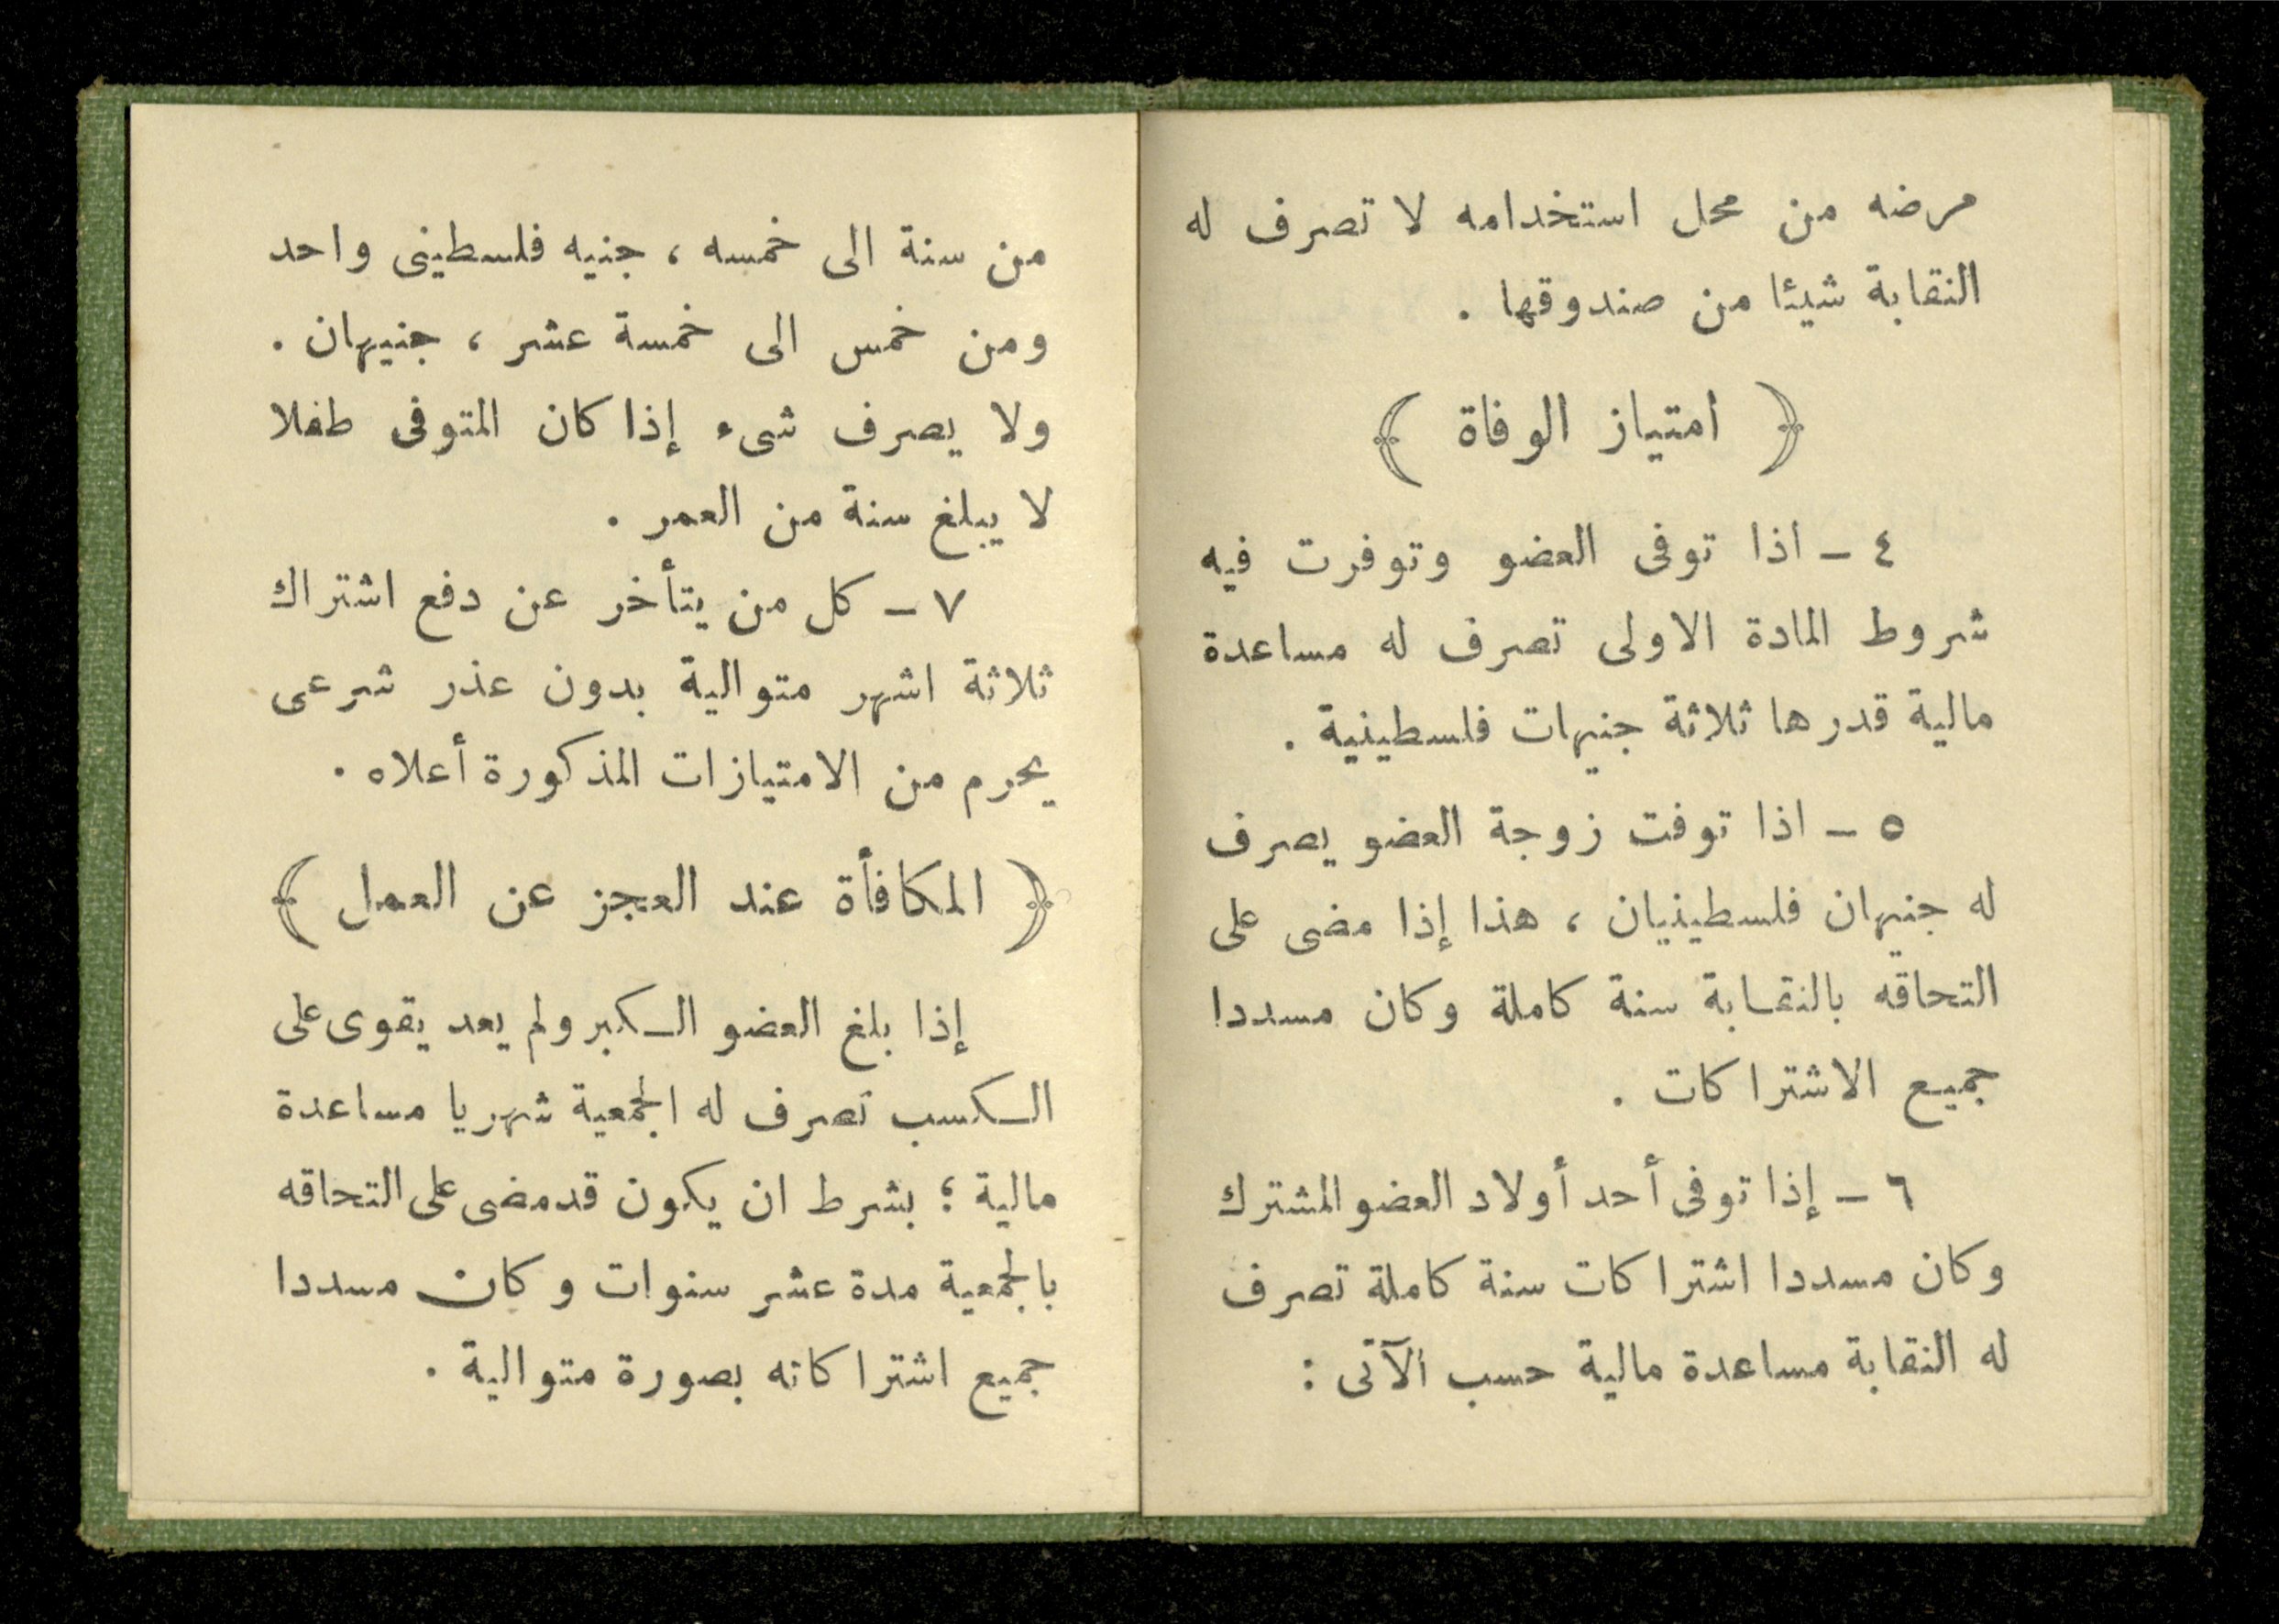 مرضه من محل استخدامه لا تصرف له
النقابة شيئا من صندوقها .
﴿ امتياز الوفاة ﴾
٤ – اذا توفى العضو وتوفرت فيه
شروط المادة الاولى تصرف له مساعدة
مالية قدرها ثلاثة جنيهات فلسطينية .
٥ – اذا توفت زوجة العضو يصرف
له جنيهان فلسطينيان ، هذا إذا مضى على
التحاقه بالنقابة سنة كاملة وكان مسددا
جميع الاشتراكات .
٦ – إذا توفى أحد أولاد العضو المشترك
وكان مسددا اشتراكات سنة كاملة تصرف
له النقابة مساعدة مالية حسب الآتى :
من سنة الى خمسه ، جنيه فلسطينى واحد
ومن خمس الى خمسة عشر ، جنيهان .
ولا يصرف شىء إذا كان المتوفى طفلا
لا يبلغ سنة من العمر .
٧ – كل من يتأخر عن دفع اشتراك
ثلاثة اشهر متوالية بدون عذر شرعى
يحرم من الامتيازات المذكورة أعلاه .
﴿ المكافأة عند العجز عن العمل ﴾
إذا بلغ العضو الكبر ولم يعد يقوى على
الكسب تصرف له الجمعية شهريا مساعدة
مالية ؛ بشرط ان يكون قد مضى على التحاقه
بالجمعية مدة عشر سنوات وكان مسددا
جميع اشتراكاته بصورة متوالية .